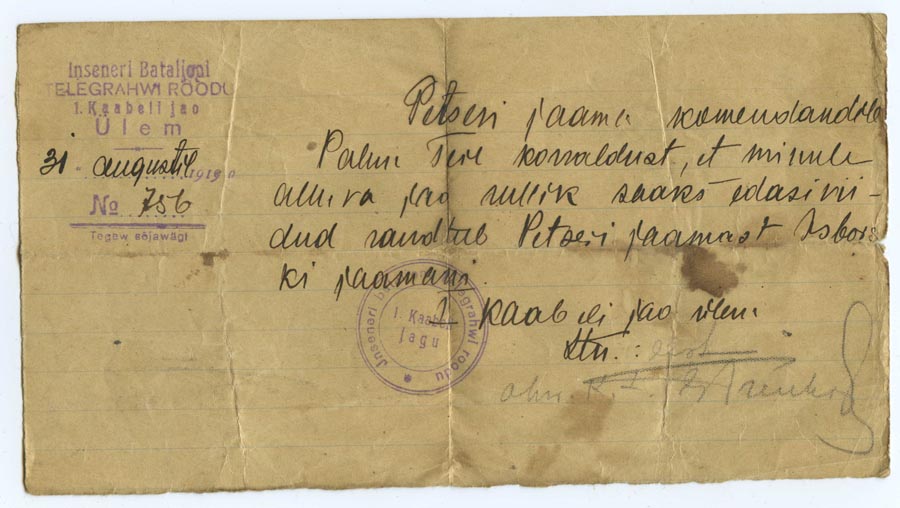 Inseneri Bataljoni
TELEGRAHWI ROODU
1. Kaabeli jao
Ülem
31 augustil 1919 a
№ 756
Tegew sõjawägi
Petseri jaama komendandile
Palun Teie korraldust, et minule
alluva jao rullik saaks edasi vii-
dud raudteel Petseri jaamast Isbors
ki jaamani.
I kaabeli jao ülem
Ltn.:
Inseneri b telegrahwi roodu
1. Kaabeli
jagu